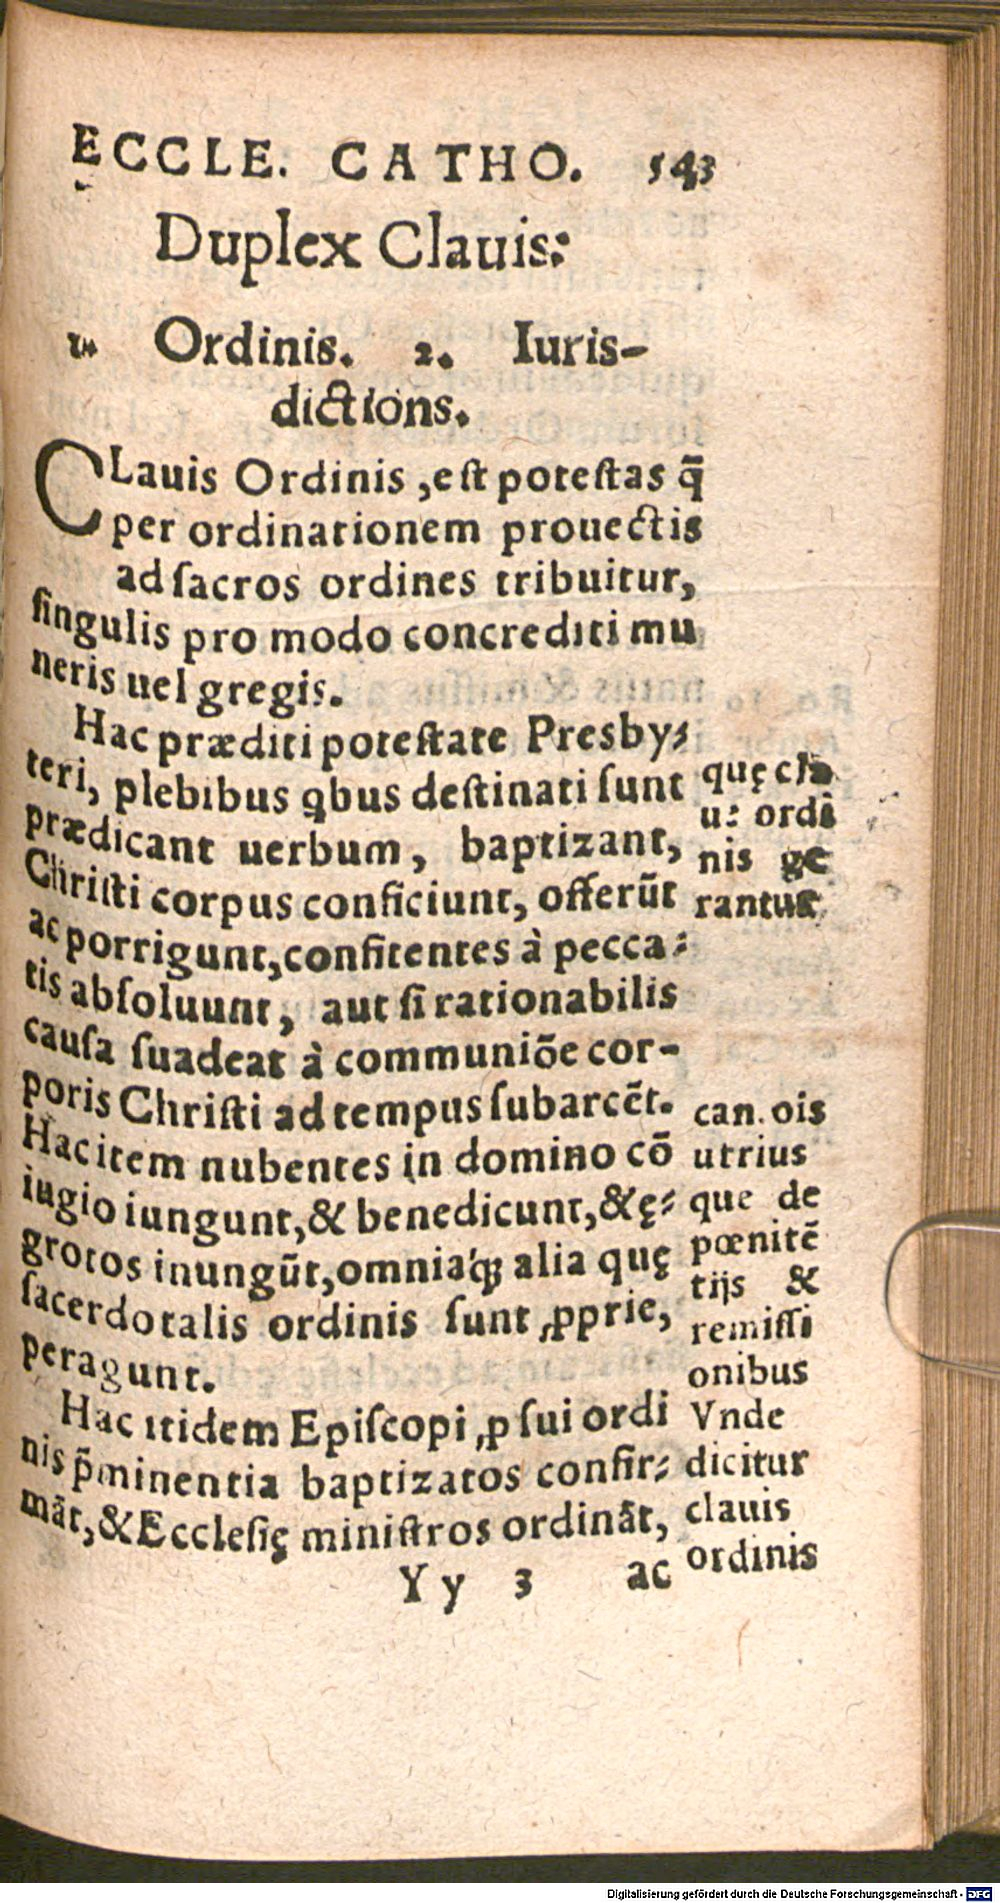 ECCLE. CATHO. 543
Duplex Clauis:
1. Ordinis. 2. Iuris-
dictions.
CLauis Ordinis, est potestas q̃
per ordinationem prouectis
ad sacros ordines tribuitur,
singulis pro modo concrediti mu
neris uel gregis.
Hac præditi potestate Presby⸗
teri, plebibus qbus destinati sunt
prædicant uerbum, baptizant,
Christi corpus conficiunt, offerũt
ac porrigunt, confitentes à pecca⸗
tis absoluunt, aut si rationabilis
causa suadeat à communiõe cor-
poris Christi ad tempus subarcẽt.
Hac item nubentes in domino cõ
iugio iungunt, & benedicunt, & ę⸗
grotos inungũt, omniaq́ꝫ alia quę
sacerdotalis ordinis sunt ꝓprie,
peragunt.
Hac itidem Episcopi ꝓ sui ordi
nis p̃minentia baptizatos confir⸗
mãt, & Ecclesię ministros ordinãt,
Yy 3 ac
quę cla
u: ordi
nis ge
rantur
can. ois
utrius
que de
pœnitẽ
tijs &
remissi
onibus
Vnde
dicitur
clauis
ordinis
Digitalisierung gefördert durch die Deutsche Forschungsgemeinschaft - DFG